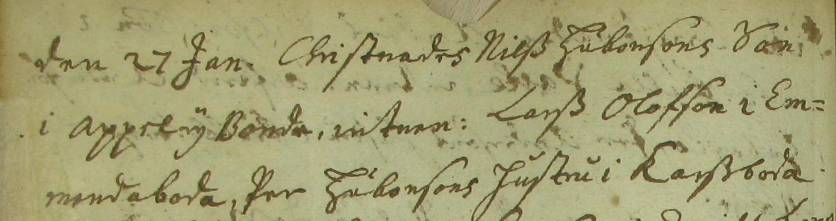 den 27 Jan. Christnades Nilß Håkonsons Son
i Appelöÿ Bonde, vitnen: Larß Olofsson i Em=
mendaboda, Per Håkonsons hustru i Karßboda